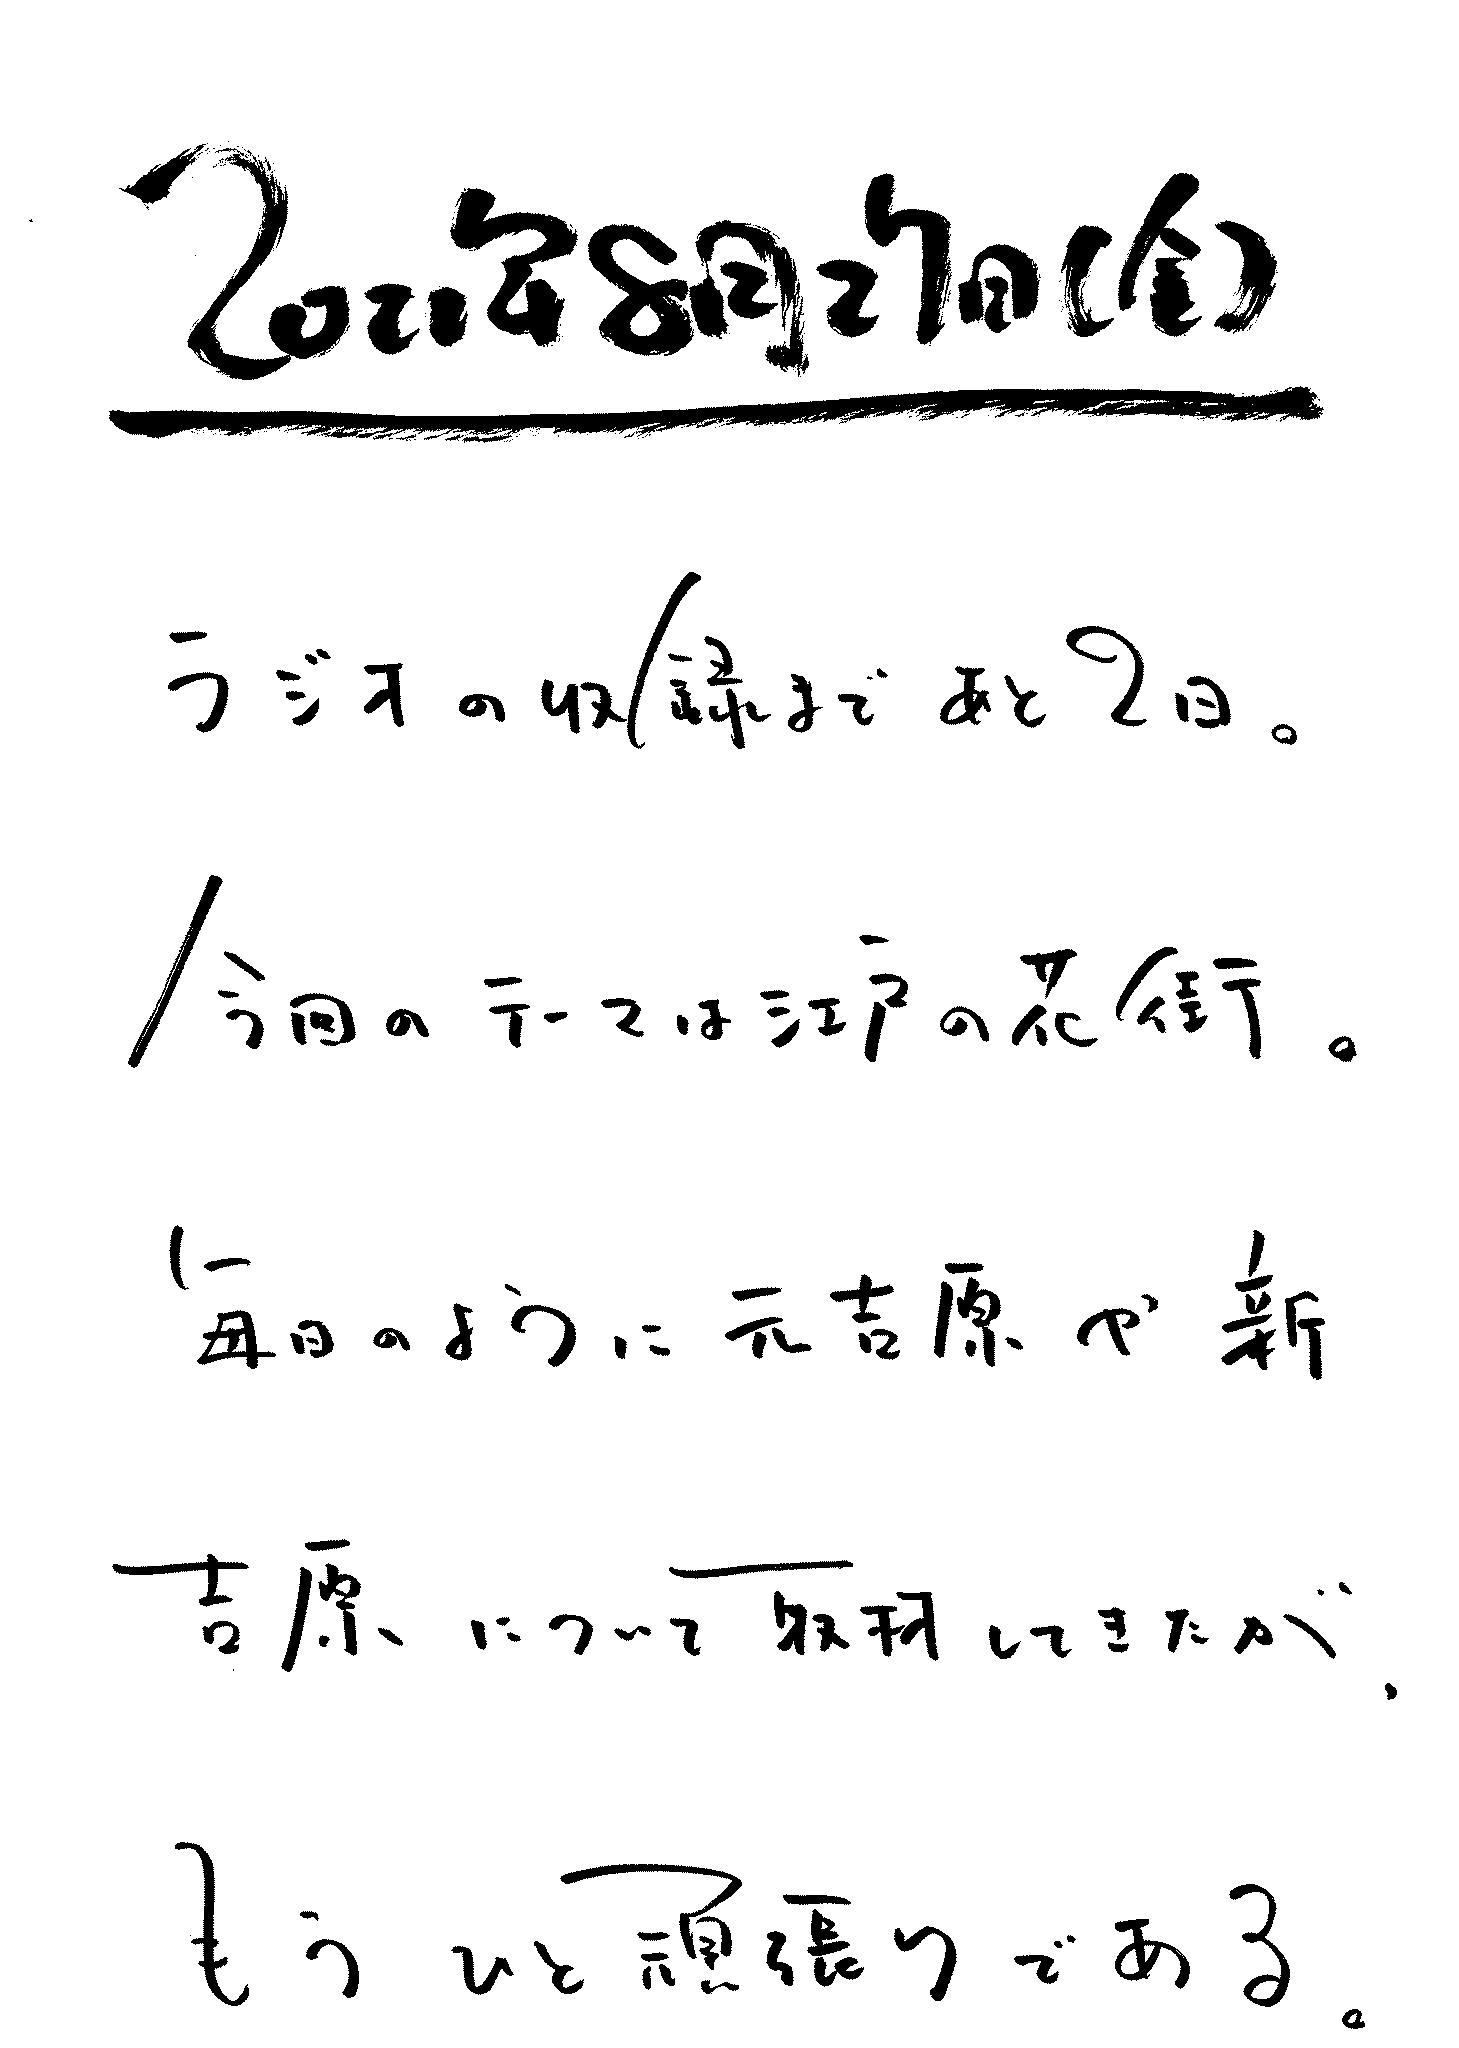 2021年8月27日(金)
ラジオの収録まであと2日。
今回のテーマは江戸の花街。
毎日のように元吉原や新
吉原について取材してきたが、
もうひと頑張りである。